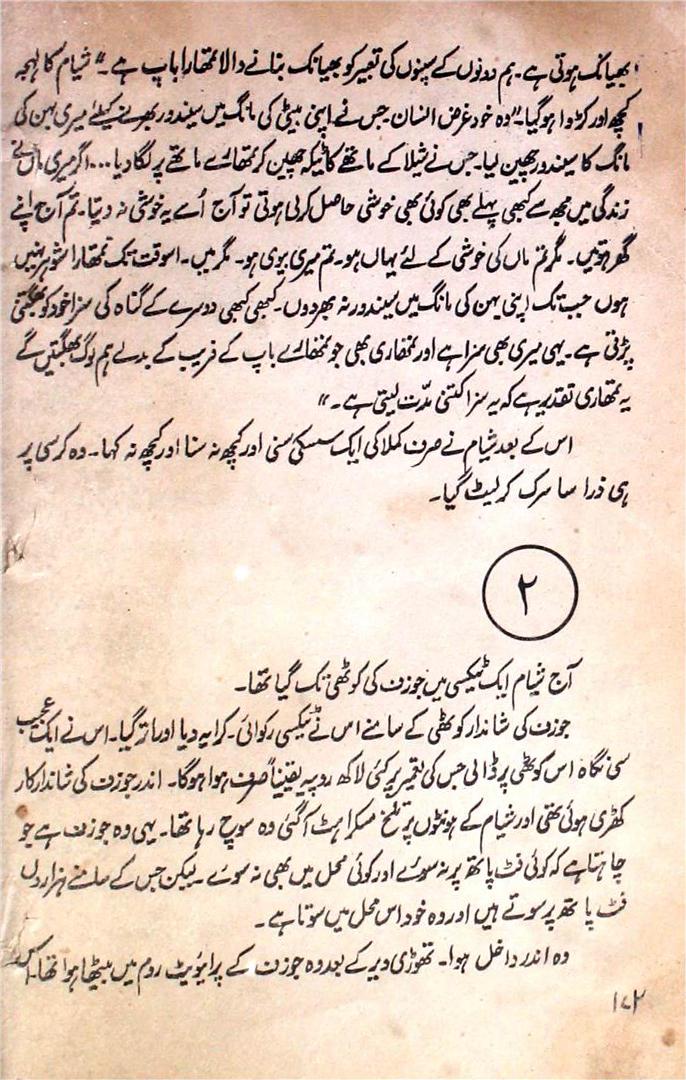 بھیانک ہوتی ہے۔ ہم دونوں کے سپنوں کی تعبیر کو بھیانک بنانے والا تمھارا باپ ہے۔" شیام کا لہجہ
کچھ اور کڑوا ہو گیا۔ "وہ خود غرض انسان جس نے اپنی بیٹی کی مانگ میں سیندور بھرنے کیلئے میری بہن کی
مانگ کا سیندور چھین لیا۔ جس نے شیلا کے ماتھے کا ٹیکہ چھین کر تمھارے ماتھے پر لگا دیا... اگر میری ماں نے
زندگی میں مجھ سے کبھی پہلے بھی کوئی بھی خوشی حاصل کر لی ہوتی تو آج اُسے یہ خوشی نہ دیتا۔ تم آج اپنے
گھر ہوتیں۔ مگر تم ماں کی خوشی کے لئے یہاں ہو۔ تم میری بیوی ہو۔ مگر میں۔ اسوقت تک تمھارا شوہر نہیں
ہوں جب تک اپنی بہن کی مانگ میں سیندور نہ بھر دوں۔ کبھی کبھی دوسرے کے گناہ کی سزا خود کو بھگتنی
پڑتی ہے۔ یہی میری بھی سزا ہے اور تمھاری بھی جو تمھارے باپ کے فریب کے بدلے ہم لوگ بھگتیں گے
یہ تمھاری تقدیر ہے کہ یہ سزا کتنی مدّت لیتی ہے۔"
اس کے بعد شیام نے صرف کملا کی ایک سسکی سنی اور کچھ نہ سنا اور کچھ نہ کہا۔ وہ کرسی پر
ہی ذرا سا سرک کر لیٹ گیا۔
۲
آج شیام ایک ٹیکسی میں جوزف کی کوٹھی تک گیا تھا۔
جوزف کی شاندار کوٹھی کے سامنے اس نے ٹیکسی رکوائی۔ کرایہ دیا اور اتر گیا۔ اس نے ایک عجیب
سی نگاہ اس کوٹھی پر ڈالی جس کی تعمیر پر کئی لاکھ روپیہ یقیناً صرف ہوا ہوگا۔ اندر جوزف کی شاندار کار
کھڑی ہوئی تھی اور شیام کے ہونٹوں پر تلخ مسکراہٹ آ گئی وہ سوچ رہا تھا۔ یہی وہ جوزف ہے جو
چاہتا ہے کہ کوئی فٹ پاتھ پر نہ سوئے اور کوئی محل میں بھی نہ سوئے۔ لیکن جس کے سامنے ہزاروں
فٹ پاتھ پر سوتے ہیں اور وہ خود اس محل میں سوتا ہے۔
وہ اندر داخل ہوا۔ تھوڑی دیر کے بعد وہ جوزف کے پرائیویٹ روم میں بیٹھا ہوا تھا۔ اس
۱۷۲